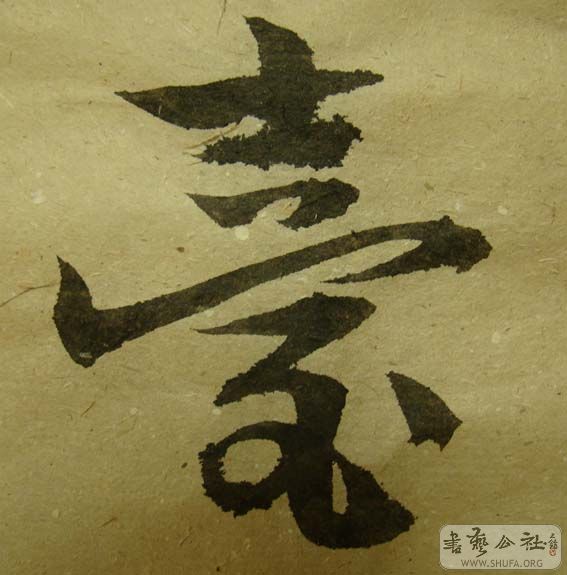 臺
書藝公社
WWW.SHUFA.ORG